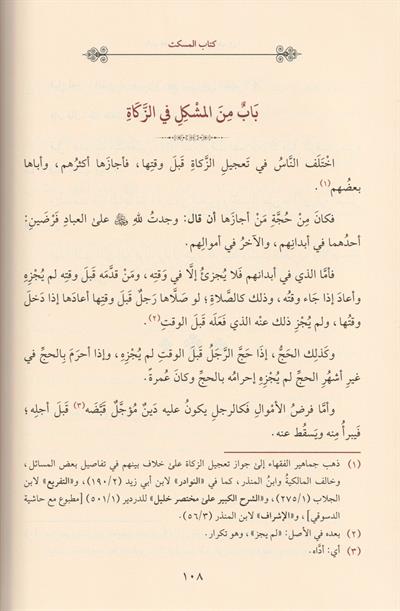 كتاب المسكت
بَابٌ مِنَ المشْكِلِ في الزَّكَاةِ
اختَلَف النَّاسُ في تَعجيلِ الزَّكاةِ قَبلَ وقتِها، فأجازَها أكثرُهم، وأباها
بعضُهم(١).
فكانَ مِن حُجَّةِ مَنْ أجازَها أن قال: وجدتُ للهِ ﷻ على العبادِ فَرْضَينِ:
أحدُهما في أبدانِهم، والآخرُ في أموالِهم.
فأمَّا الذي في أبدانهم فَلا يُجزئُ إلَّا في وَقتِه، ومَنْ قدَّمَه قَبلَ وقتِه لم يُجْزِهِ
وأعادَ إذا جَاء وقتُه، وذلك كالصَّلاةِ؛ لو صَلَّاها رَجلٌ قَبلَ وقتِها أعادَها إذا دَخلَ
وقتُها، ولم يُجْزِ ذلك عنْه الذي فَعَلَه قَبلَ الوقتِ(٢).
وكَذلِك الحَجُّ، إذَا حَجَّ الرَّجلُ قَبلَ الوقتِ لم يُجْزِهِ، وإذا أحرَمَ بِالحجِّ في
غيرِ أشهُرِ الحجِّ لم يُجْزِهِ إحرامُه بالحجِّ وكانَ عُمرةً.
وأمَّا فرضُ الأمْوالِ فكالرجلِ يكونُ عليه دَينٌ مؤجَّلٌ قبَّضَه(٣) قَبلَ أجلِه؛
فيَبرأُ مِنه ويَسقُط عنه.
(١) ذهب جماهير الفقهاء إلى جواز تعجيل الزكاة على خلاف بينهم في تفاصيل بعض المسائل،
وخالف المالكية وابنُ المنذر، كما في «النوادر» لابن أبي زيد (١٩٠/٢)، و«التفريع» لابن
الجلاب (٢٧٥/١)، و«الشرح الكبير على مختصر خليل» للدردير (٥٠١/١) [مطبوع مع حاشية
الدسوقي]، و«الإشراف» لابن المنذر (٥٦/٣).
(٢) بعده في الأصل: «لم يجز»، وهو تكرار.
(٣) أي: أدَّاه.
١٠٨